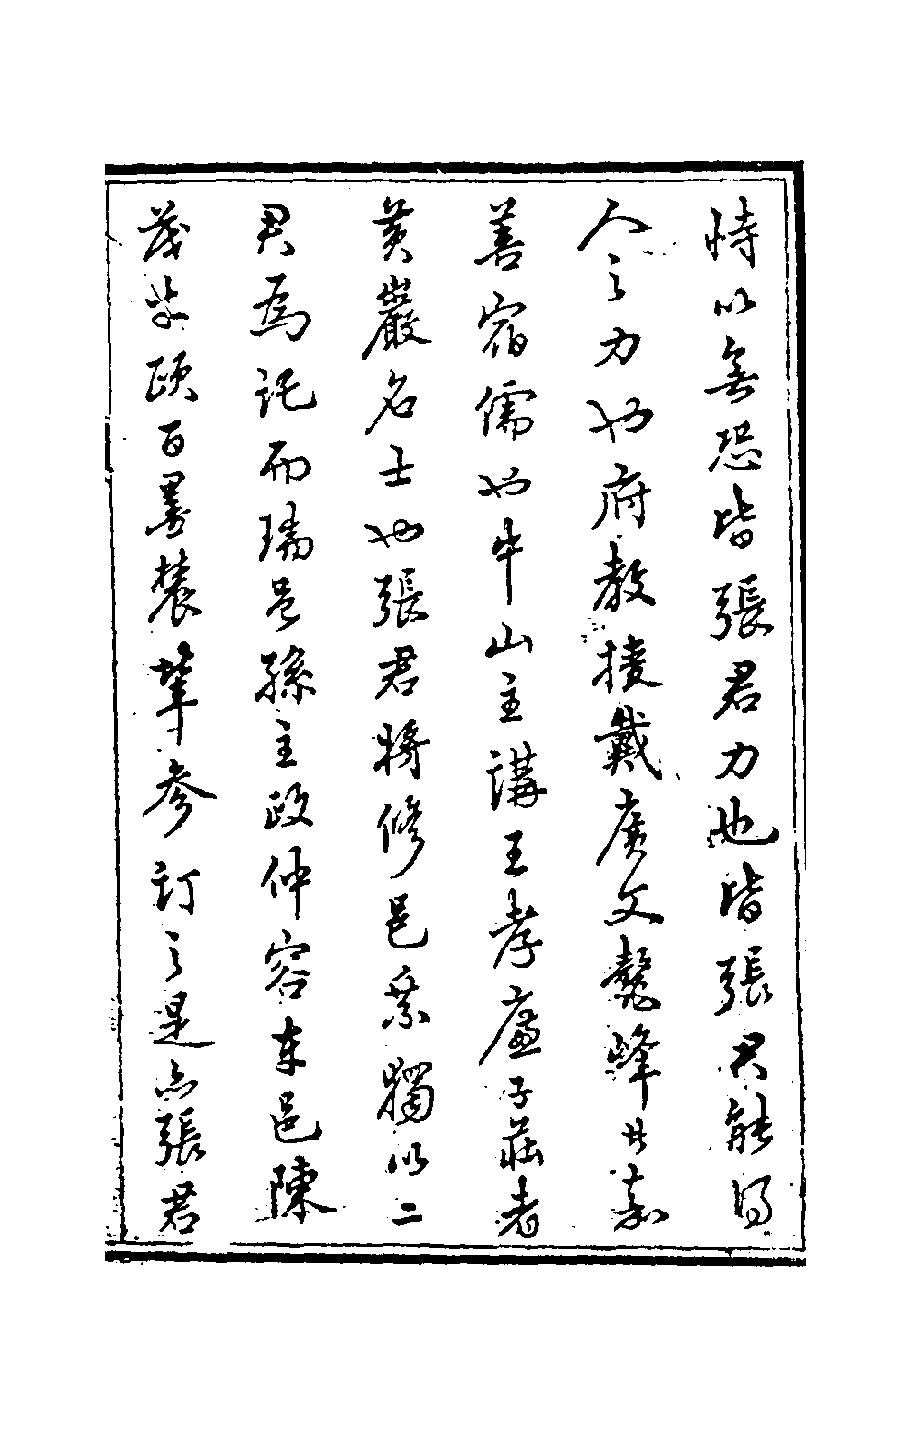 恃以無恐皆張君力也皆張君能得
人之力也府教授戴廣文鼇峰者嘉
善宿儒也中山主講王孝廉子莊者
黃巖名士也張君將修邑乘獨以二
君為託而瑞邑孫主政仲容本邑陳
茂才頤百墨農輩參訂之是亦張君